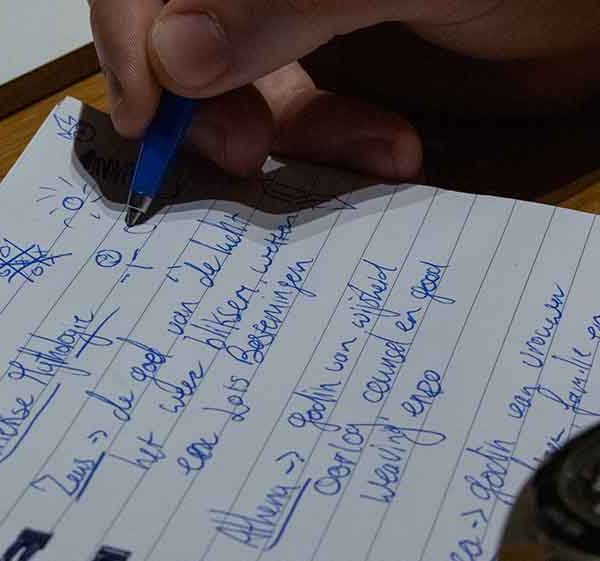 Mythologie
Zeus -> de god van de lucht
het weer bliksem, wetten
Lots Bestemingen
Athena -> godin van wijsheid
Oorlog, counsel en good
weaving enzo
-> godin van vrouwen
familie en